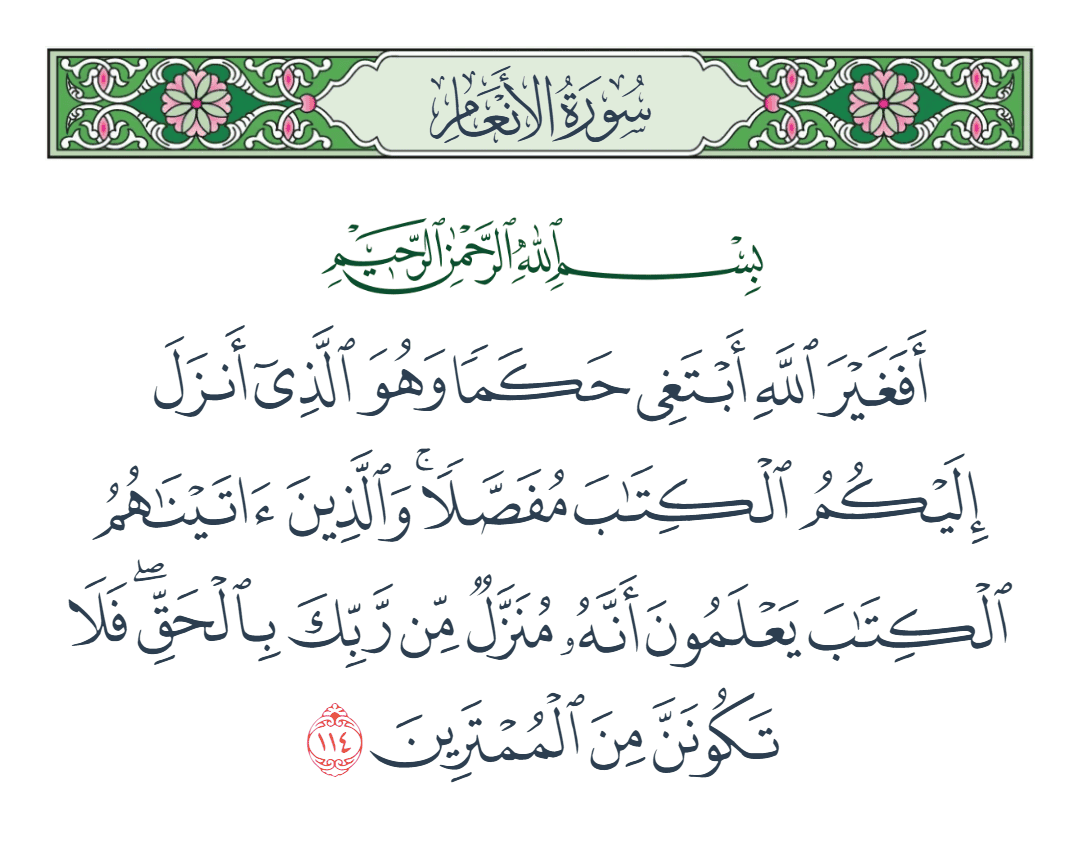 سُورَةُ الأَنْعَامِ
بِسْمِ ٱللَّهِ ٱلرَّحْمَٰنِ ٱلرَّحِيمِ
أَفَغَيْرَ ٱللَّهِ أَبْتَغِى حَكَمًا وَهُوَ ٱلَّذِىٓ أَنزَلَ
إِلَيْكُمُ ٱلْكِتَٰبَ مُفَصَّلًا ۚ وَٱلَّذِينَ ءَاتَيْنَٰهُمُ
ٱلْكِتَٰبَ يَعْلَمُونَ أَنَّهُۥ مُنَزَّلٌ مِّن رَّبِّكَ بِٱلْحَقِّ ۖ فَلَا
تَكُونَنَّ مِنَ ٱلْمُمْتَرِينَ ١١٤